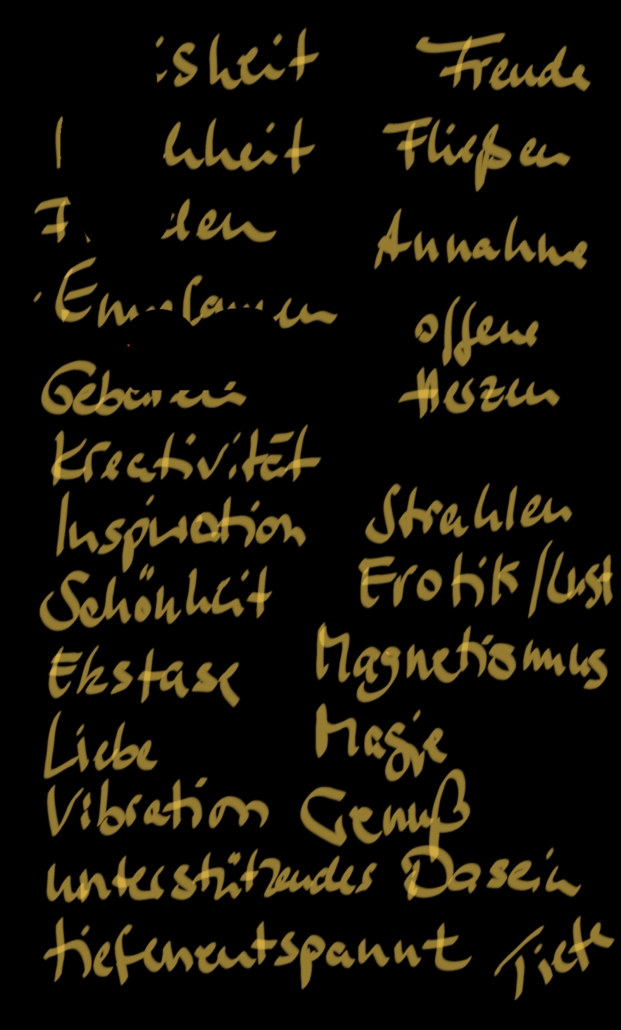 Freude
Fließen
Annahme
offene
Herzen
Kreativität
Inspiration Strahlen
Schönheit Erotik/Lust
Ekstase Magnetismus
Liebe Magie
Vibration Genuß
unterstützendes Dasein
tiefenentspannt Tiefe